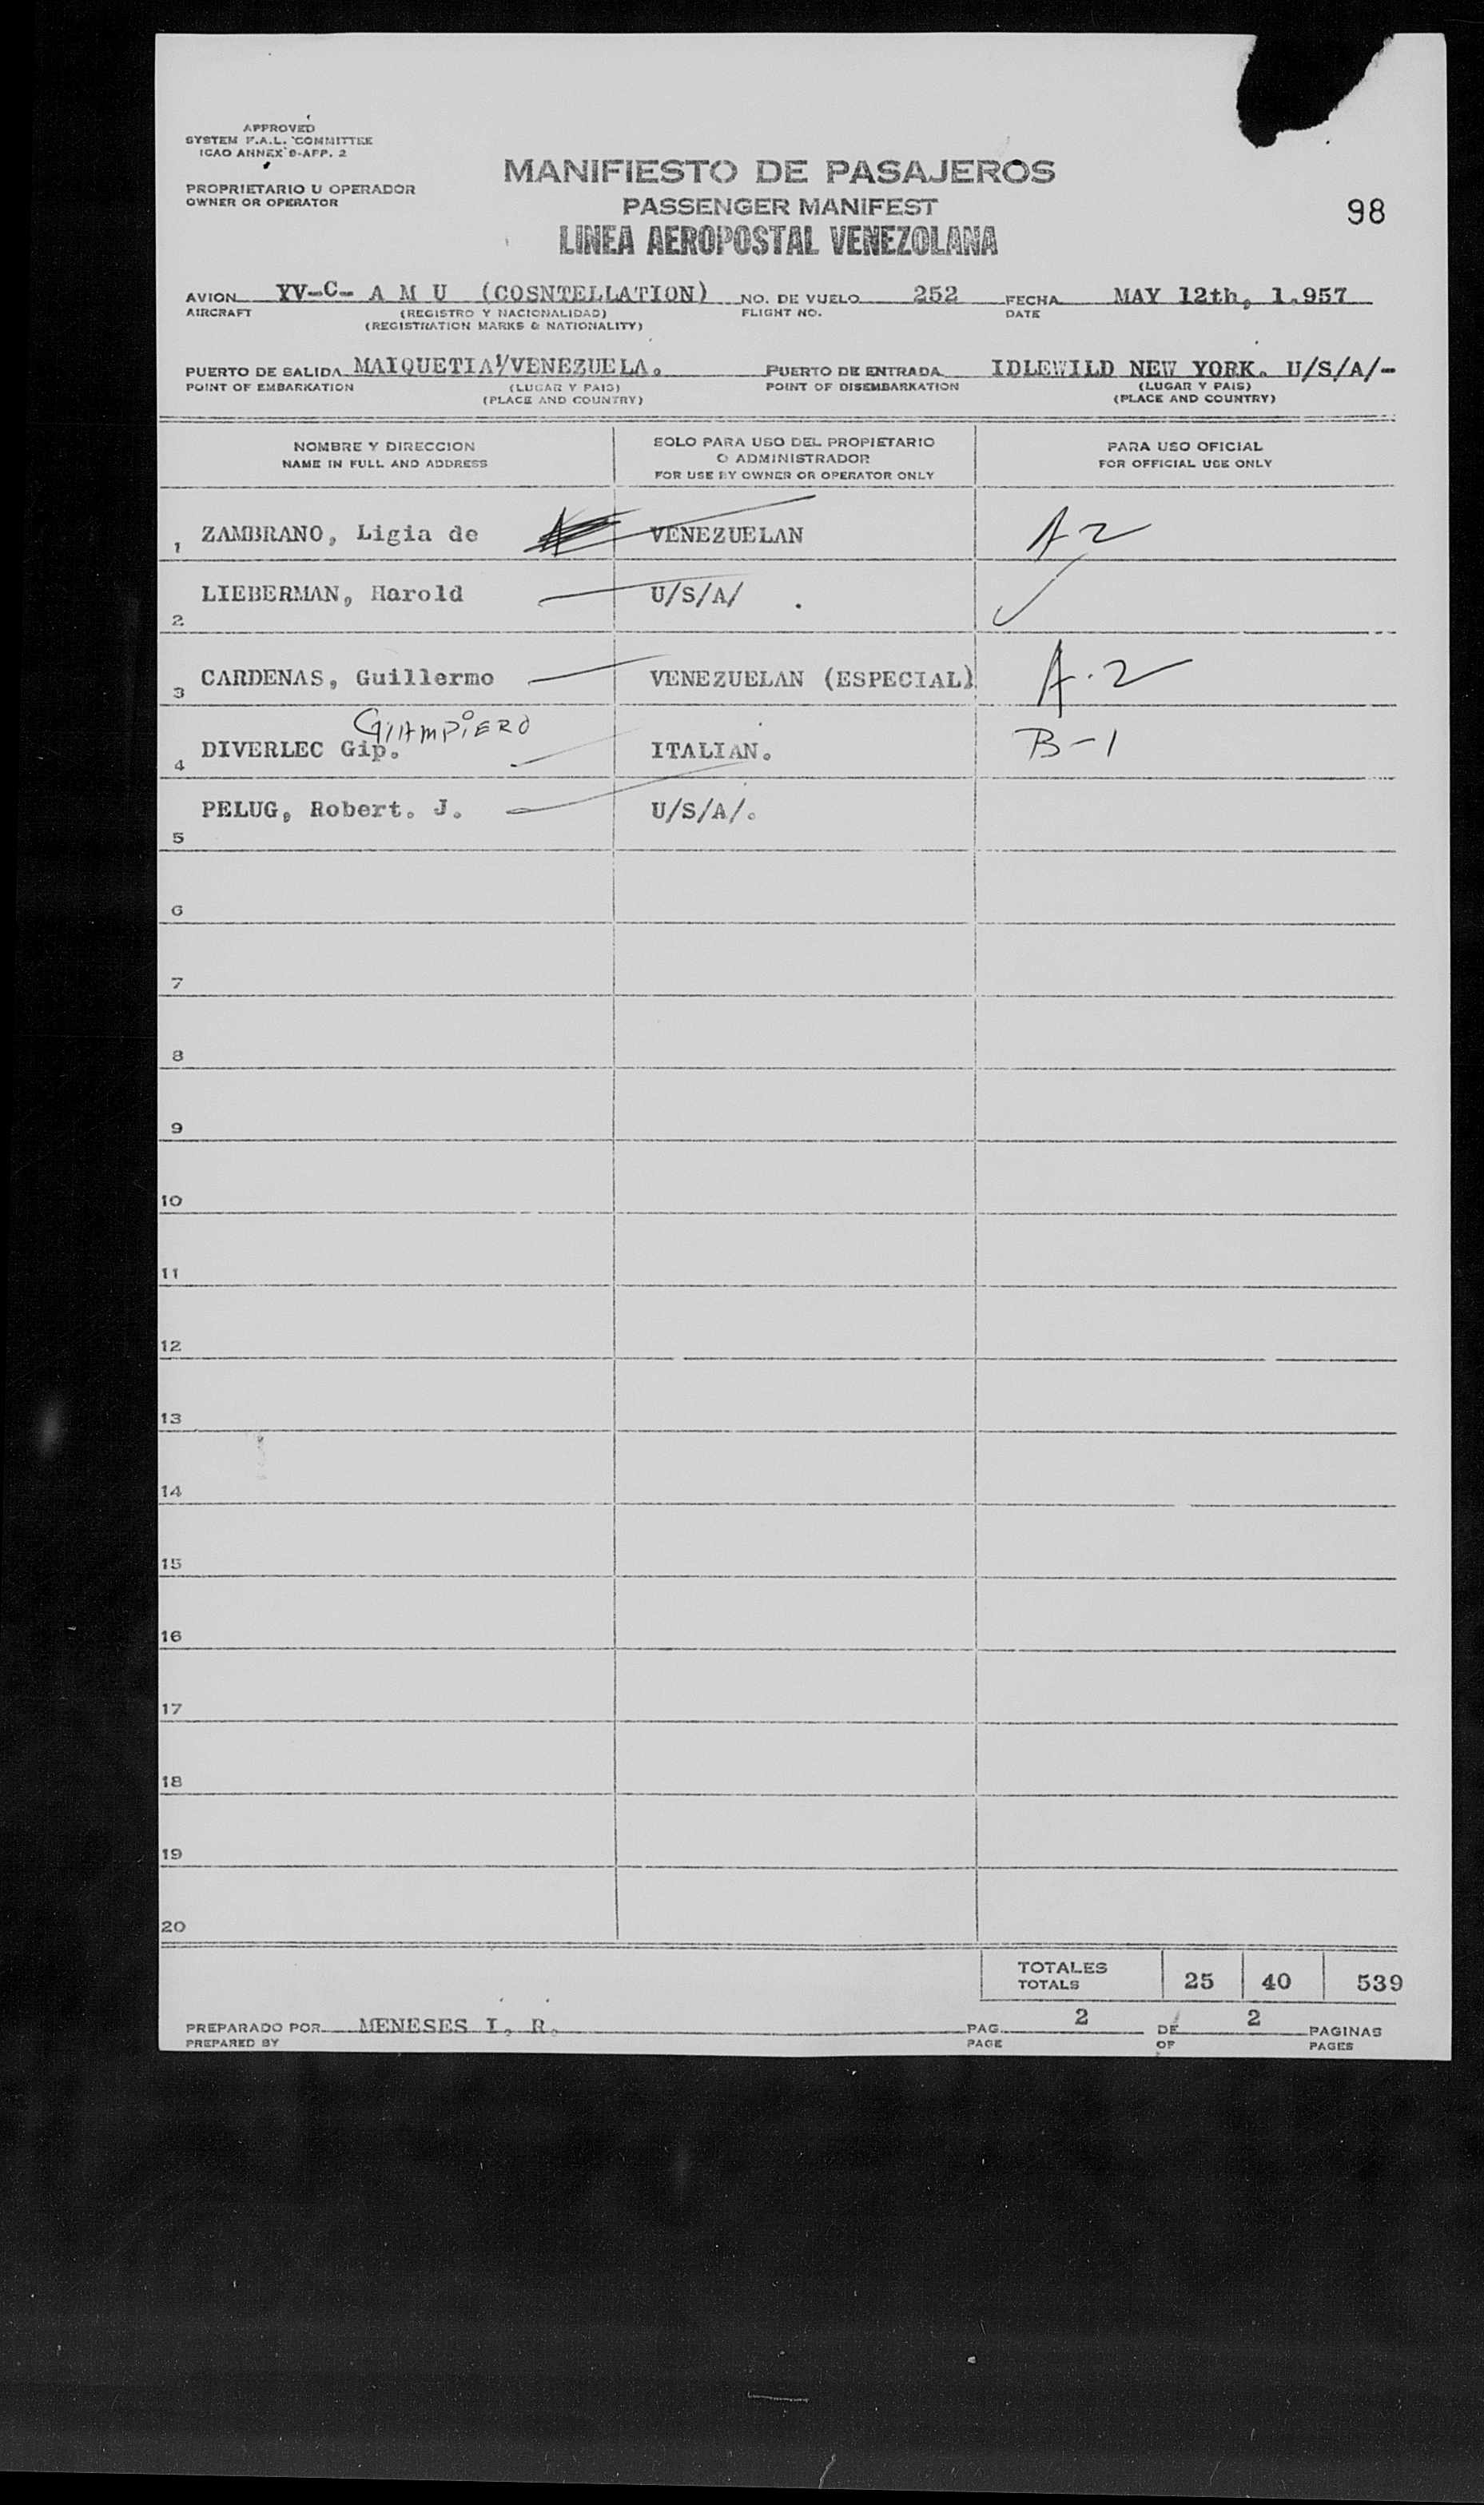 APPROVED
SYSTEM F.A.L. COMMITTEE
ICAO ANNEX 9-APP. 2
PROPRIETARIO U OPERADOR
OWNER OR OPERATOR
MANIFIESTO DE PASAJEROS
PASSENGER MANIFEST
LINEA AEROPOSTAL VENEZOLANA
98
AVION YV-C- A M U (COSNTELLATION) NO. DE VUELO 252 FECHA MAY 12th, 1.957
AIRCRAFT (REGISTRO Y NACIONALIDAD) FLIGHT NO. DATE
(REGISTRATION MARKS & NATIONALITY)
PUERTO DE SALIDA MAIQUETIA/VENEZUELA. PUERTO DE ENTRADA IDLEWILD NEW YORK. U/S/A/-
POINT OF EMBARKATION (LUGAR Y PAIS) POINT OF DISEMBARKATION (LUGAR Y PAIS)
(PLACE AND COUNTRY) (PLACE AND COUNTRY)
NOMBRE Y DIRECCION SOLO PARA USO DEL PROPIETARIO PARA USO OFICIAL
NAME IN FULL AND ADDRESS O ADMINISTRADOR FOR OFFICIAL USE ONLY
FOR USE BY OWNER OR OPERATOR ONLY
1 ZAMBRANO, Ligia de VENEZUELAN A 2
2 LIEBERMAN, Harold U/S/A/ .
3 CARDENAS, Guillermo VENEZUELAN (ESPECIAL) A-2
GIAMPiERO
4 DIVERLEC Gip. ITALIAN. B-1
5 PELUG, Robert. J. U/S/A/.
6
7
8
9
10
11
12
13
14
15
16
17
18
19
20
TOTALES 25 40 539
TOTALS
PREPARADO POR MENESES I, R. PAG. 2 DE 2 PAGINAS
PREPARED BY PAGE OF PAGES